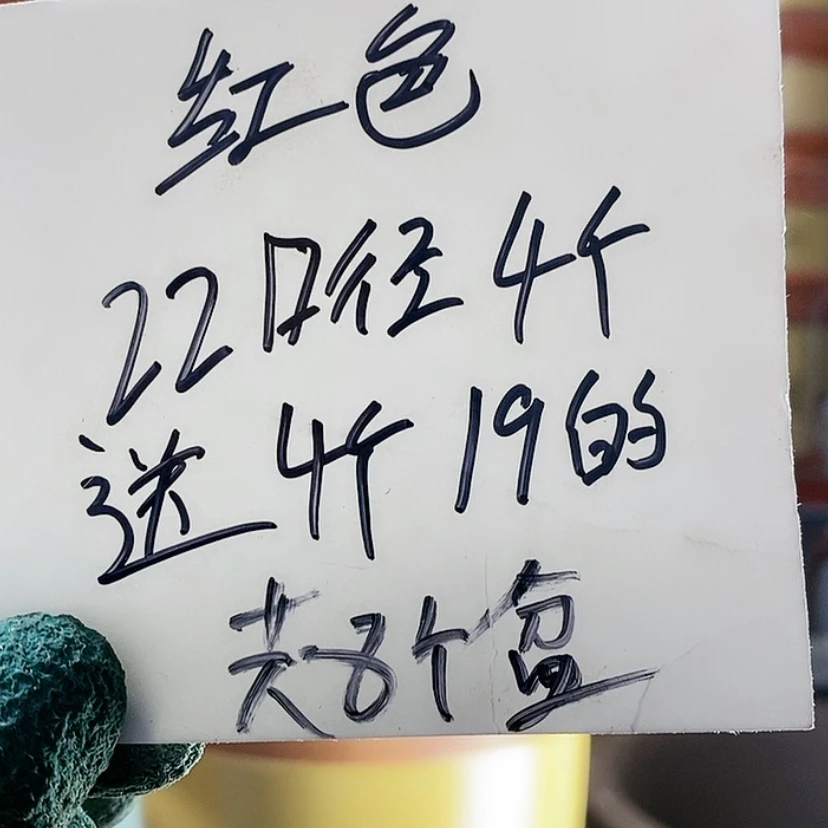 红色
22口径4个
送4个19的
共8个盆